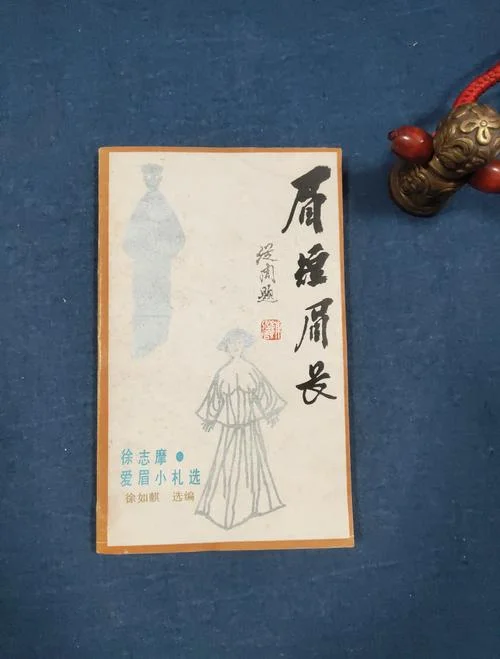 眉短眉长
从周题
徐志摩●
爱眉小札选
徐如麒 选编